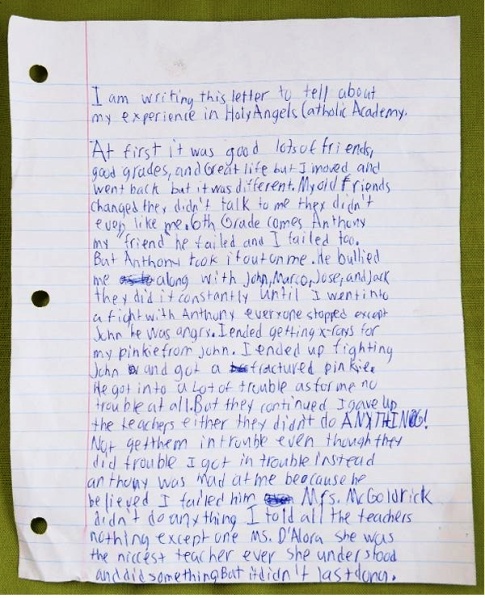 I am writing this letter to tell about
my experience in Holy Angels Catholic Academy.
At first it was good lots of friends,
good grades, and Great life but I moved and
went back but it was different. My old friends
changed they didn't talk to me they didn't
even like me. 6th Grade comes Anthony
my "friend" he failed and I failed too.
But Anthony took it out on me. He bullied
me along with John, Marco, Jose, and Jack
they did it constantly until I went into
a fight with Anthony everyone stopped except
John he was angry. I ended getting x-rays for
my pinkie from John. I ended up fighting
John and got a fractured pinkie.
He got into a Lot of trouble as for me no
trouble at all. But they continued I gave up
the teachers either they didn't do ANYTHING!
Not get them in trouble even though they
did trouble I got in trouble instead
anthony was mad at me beacause he
believed I failed him Mrs. McGoldrick
didn't do anything I told all the teachers
nothing except one Ms. D'Alora she was
the niccest teacher ever she understood
and did something But it didn't last long.